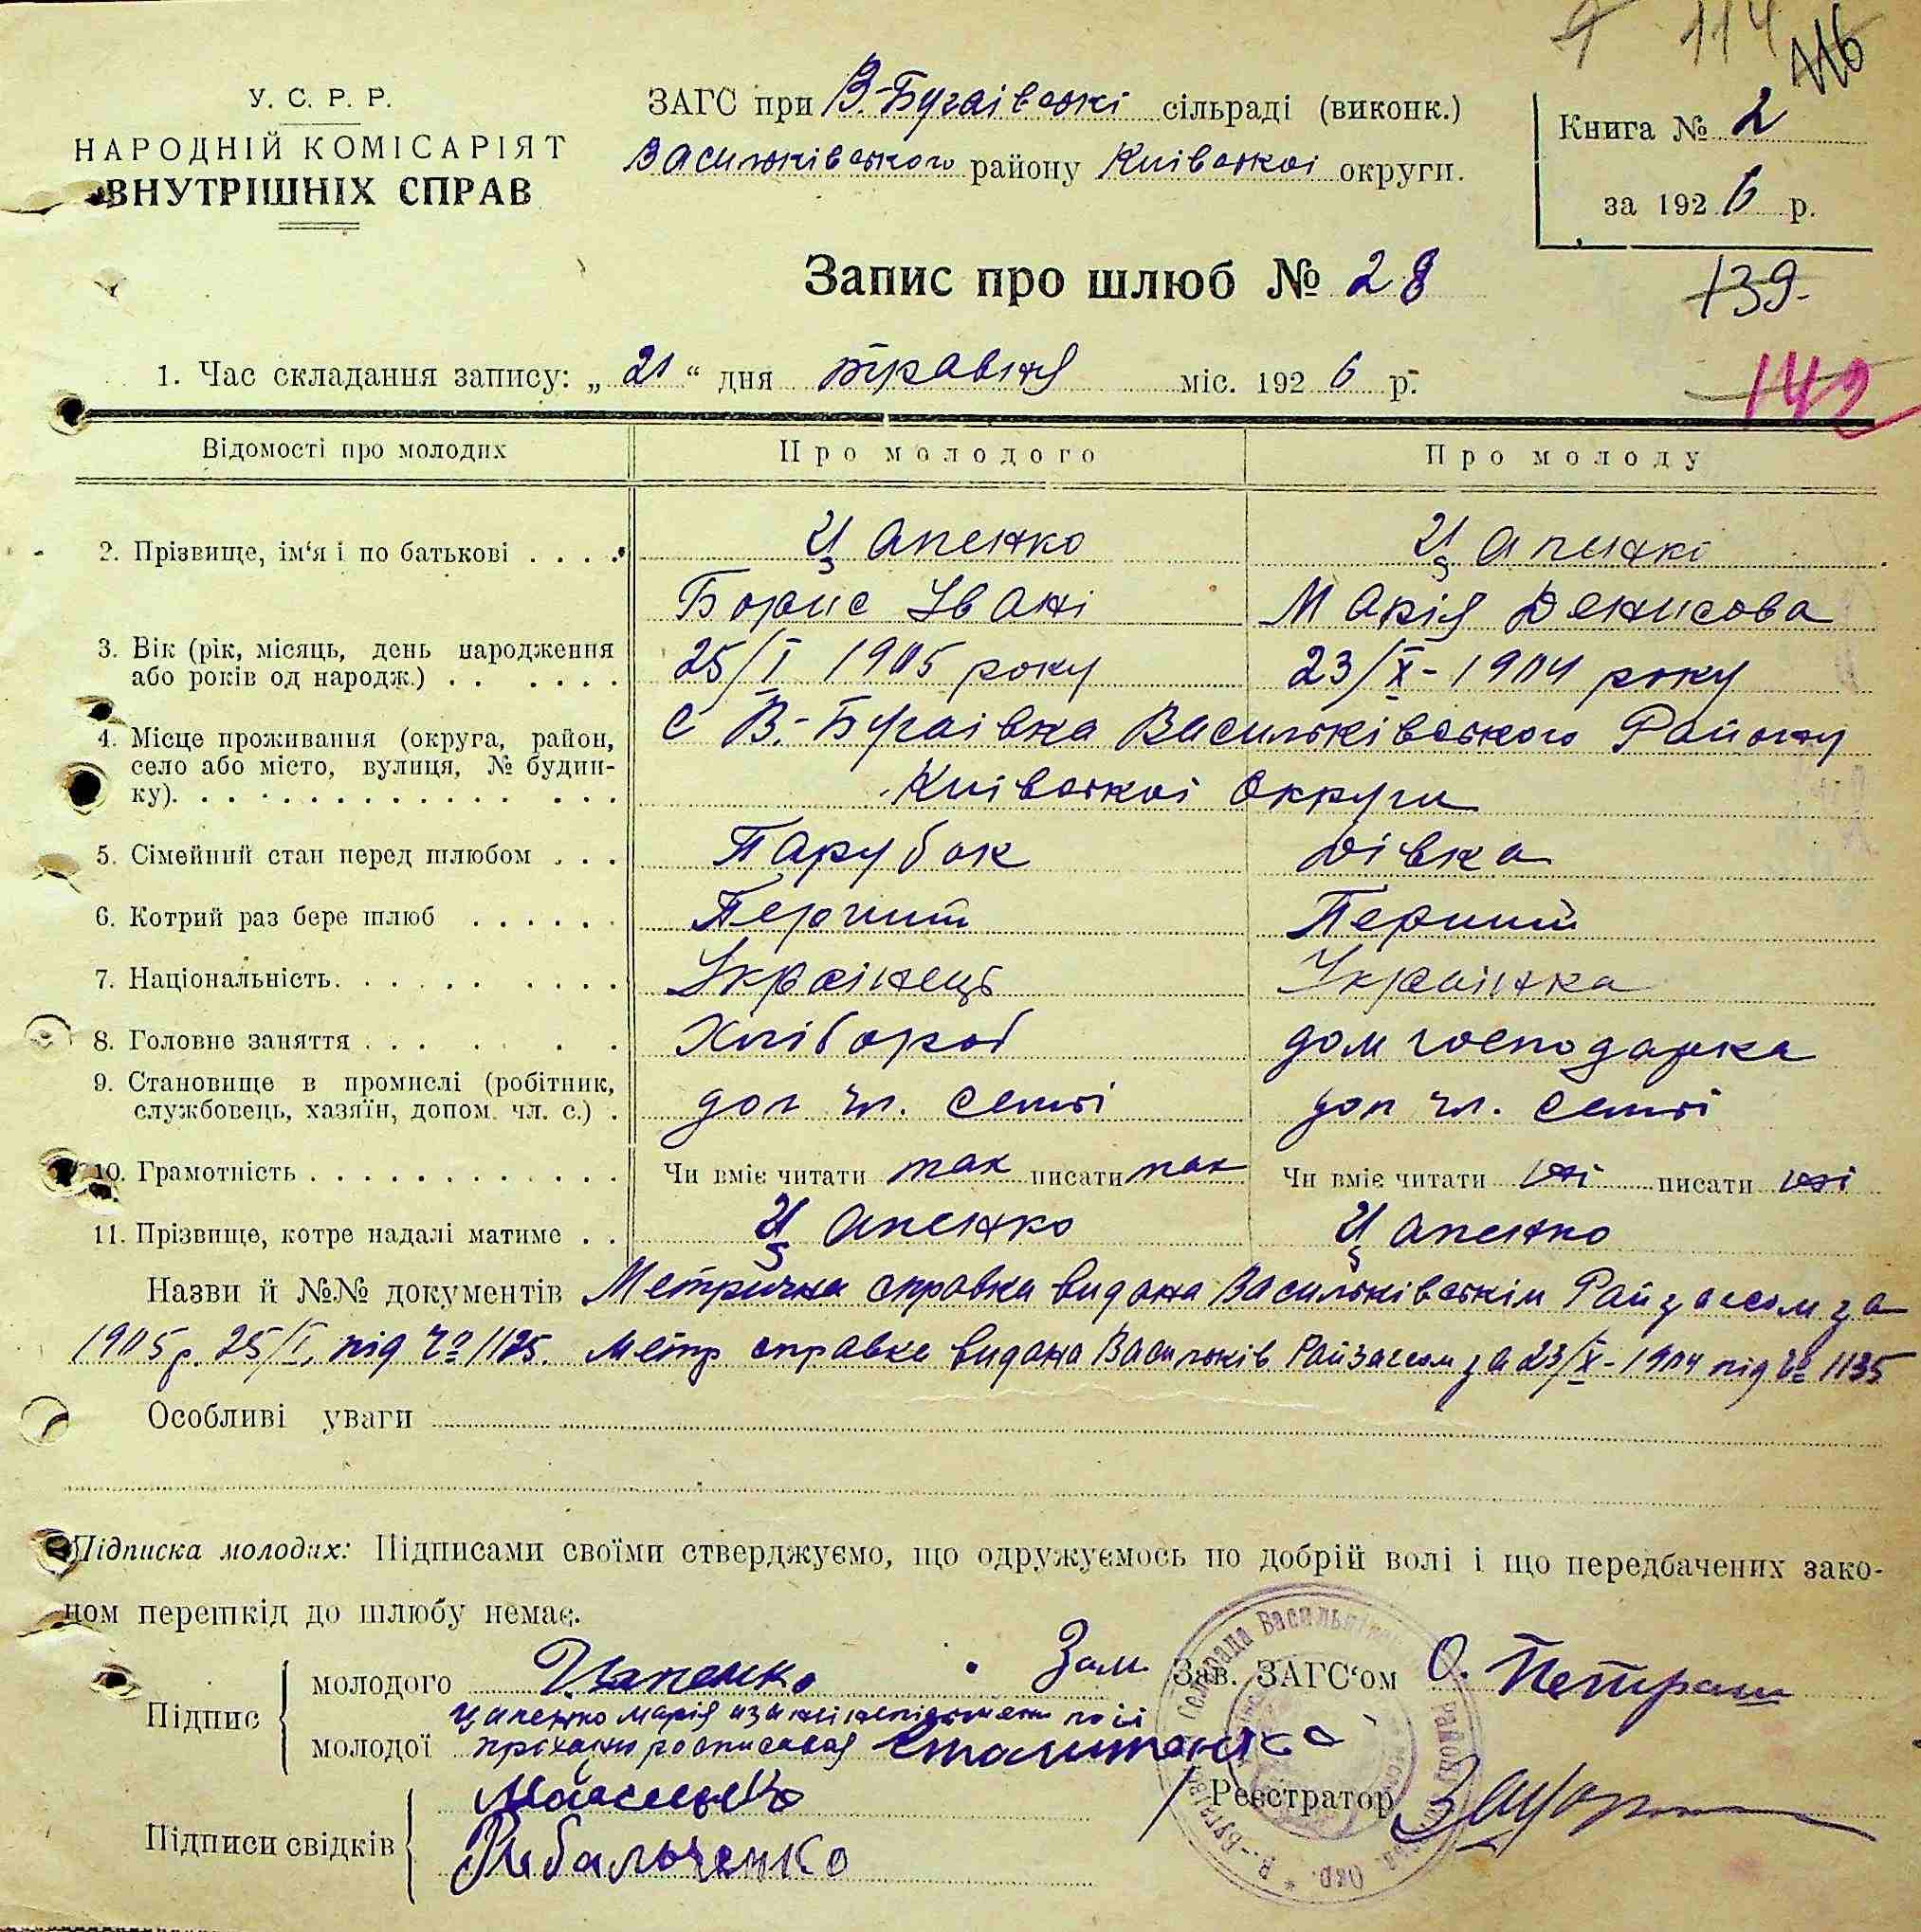 114
116
У. С. Р. Р.
НАРОДНІЙ КОМІСАРІЯТ
ВНУТРІШНІХ СПРАВ
ЗАГС при В.-Бугаівській сільраді (виконк.)
Васильківського району Київської округи.
Книга № 2
за 1926 р.
Запис про шлюб № 28
139
1. Час складання запису: „21“ дня травня міс. 1926 р.
142
Відомості про молодих Про молодого Про молоду
2. Прізвище, ім‘я і по батькові . . . . Цапенко Цапенко
Борис Івані Марія Денисова
3. Вік (рік, місяць, день народження 25/I 1905 року 23/X - 1904 року
або років од народж.) . . . . . .
4. Місце проживання (округа, район, с В.-Бугаівка Васильківського Району
село або місто, вулиця, № будин-
ку). Киівської Округи
5. Сімейний стан перед шлюбом . . . Парубок Дівка
6. Котрий раз бере шлюб . . . . . . Перший Перший
7. Національність. . . . . . . . . . Українець Українка
8. Головне заняття . . . . . . Хлібороб дом господарка
9. Становище в промислі (робітник, доп чл. семьї доп чл. семьї
службовець, хазяїн, допом. чл. с.) .
10. Грамотність . . . . . . . . . . . . Чи вміє читати так писати так Чи вміє читати ні писати ні
11. Прізвище, котре надалі матиме . . Цапенко Цапенко
Назви й №№ документів Метрична справка видана Васильківським Райзагсом за
1905 р. 25/I, під чо 1125. Метр справка видана Васильків Райзагсом за 23/X - 1904 під чо 1135
Особливі уваги
Підписка молодих: Підписами своїми стверджуємо, що одружуємось по добрій волі і що передбачених зако-
ном перешкід до шлюбу немає.
Підпис
молодого Цапенко
Зам. Зав. ЗАГС‘ом О. Петраш
Цапенко Марія а за неі неписьмен по іі
молодої проханню росписався
Реєстратор
Підписи свідків
Рибальченко